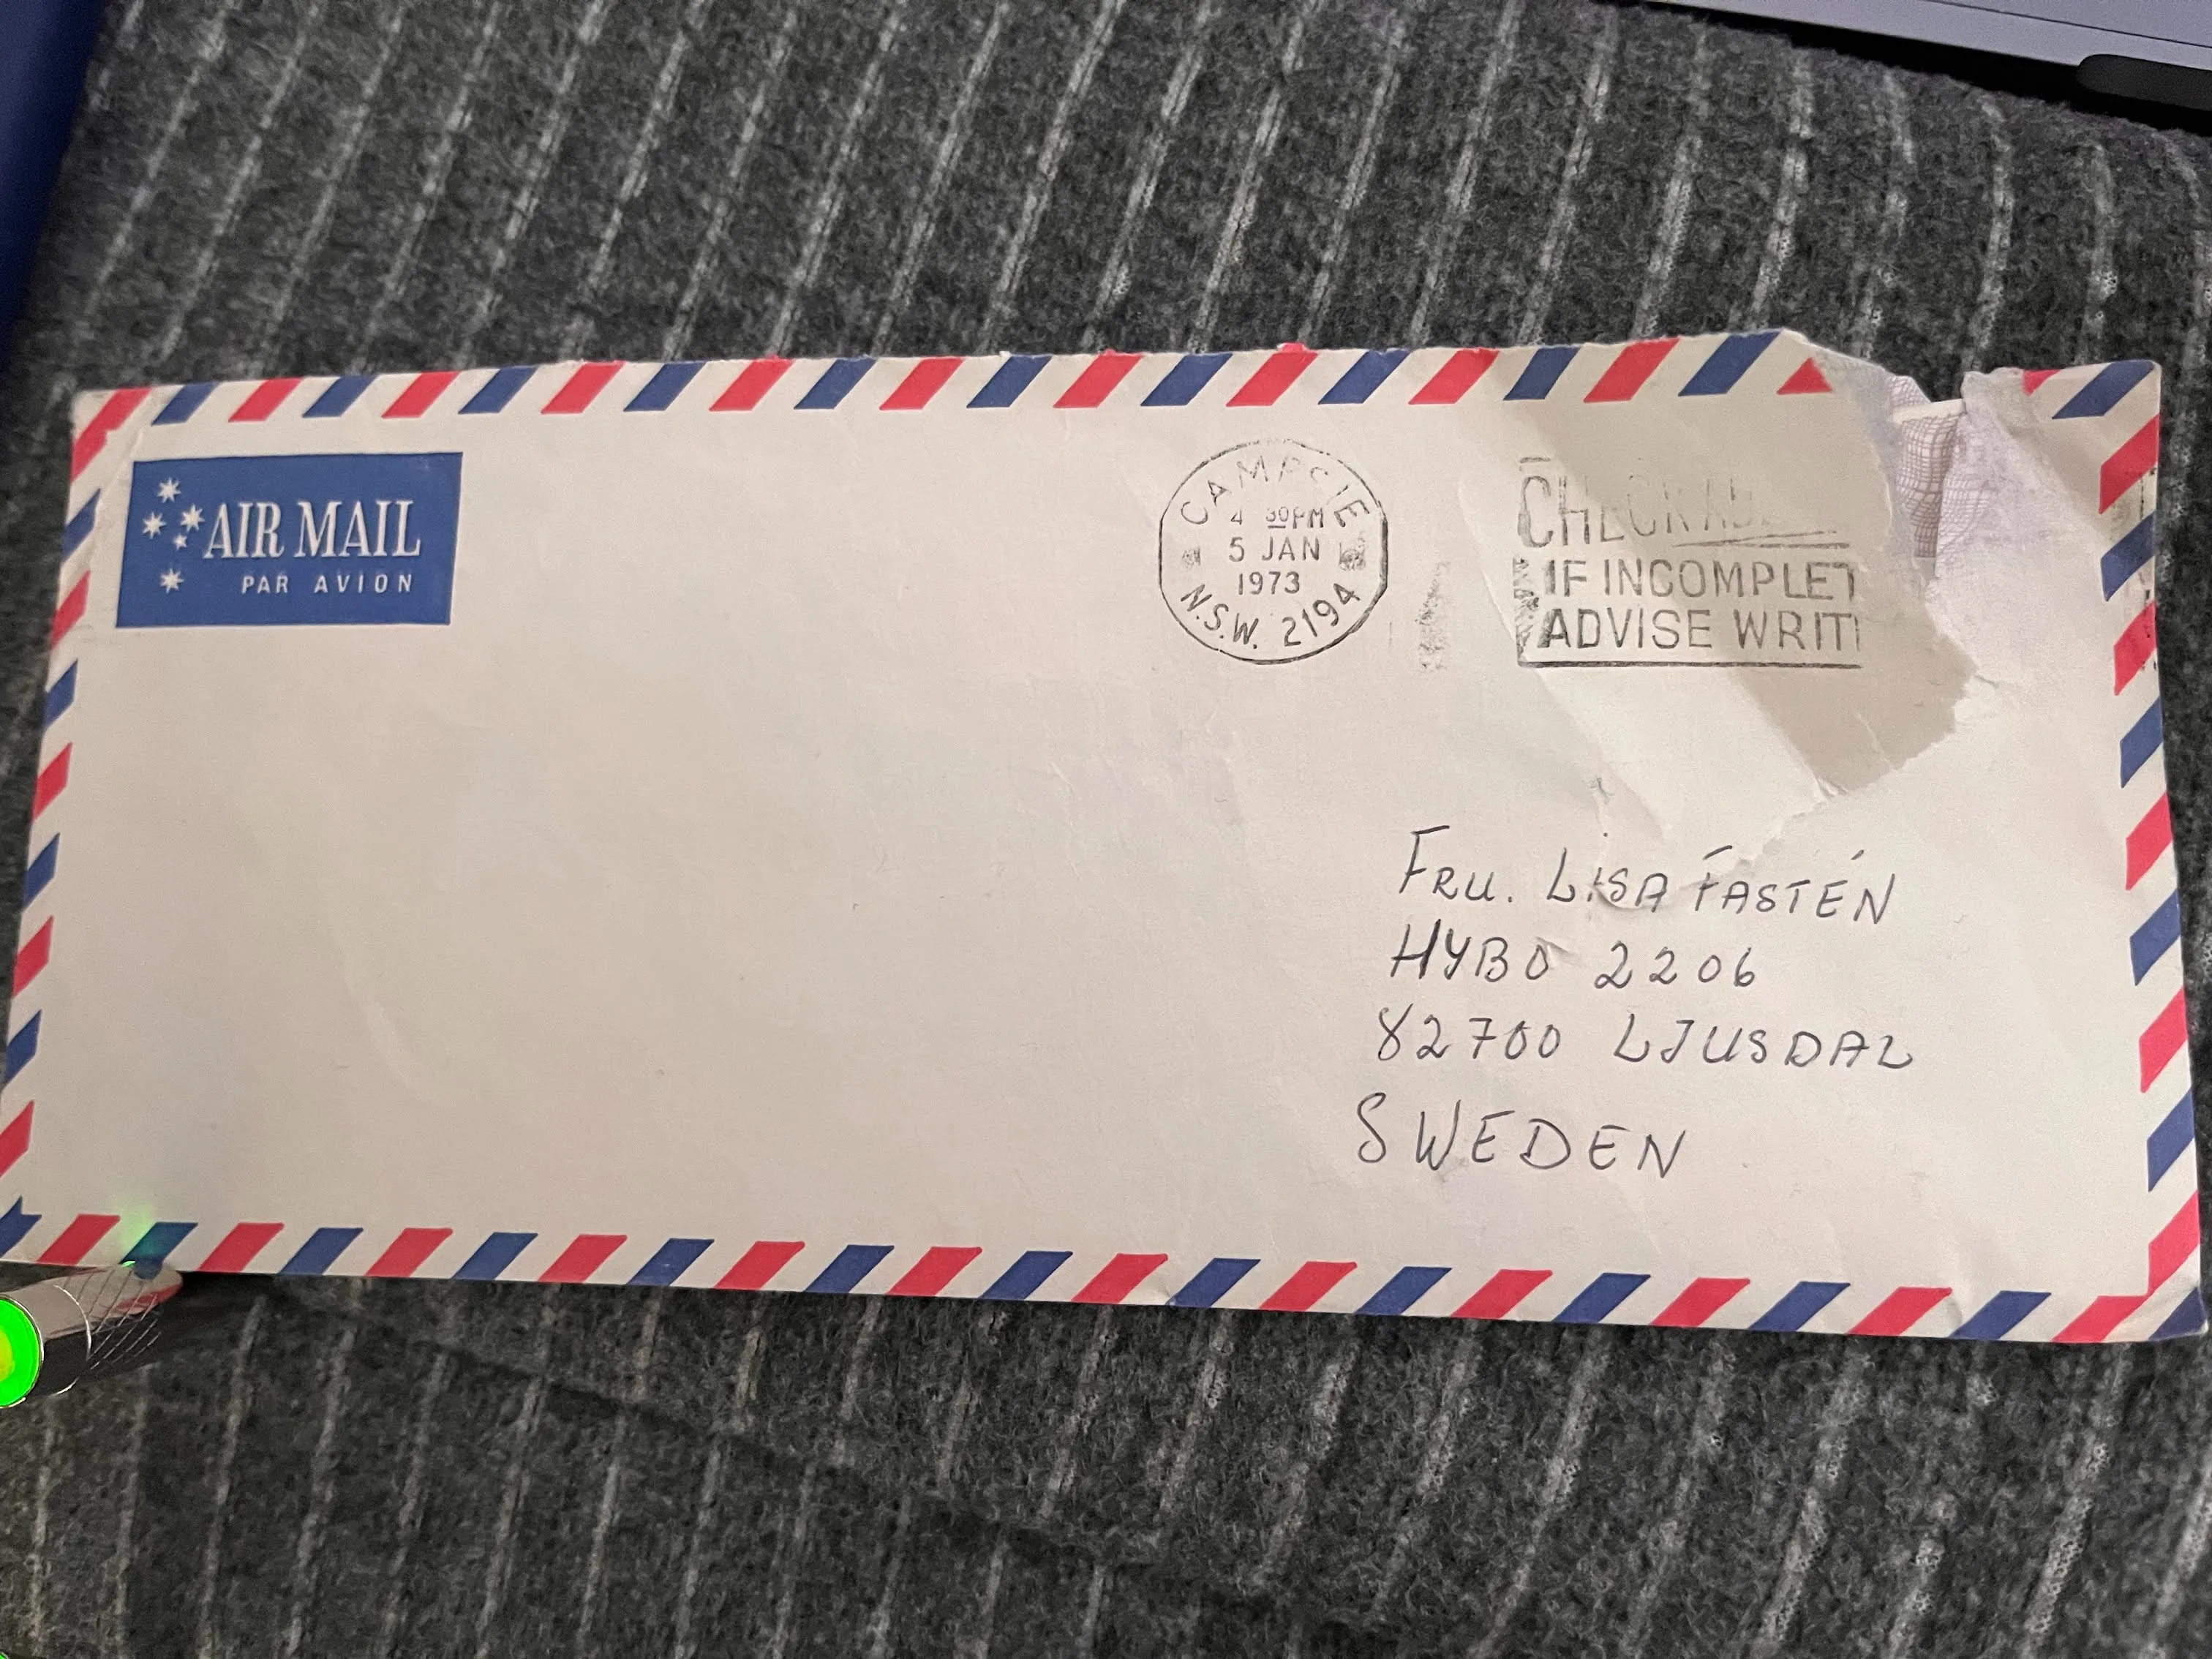 AIR MAIL
PAR AVION
CAMPSIE
4 30PM
5 JAN
1973
N.S.W. 2194
CHECK
IF INCOMPLET
ADVISE WRIT
FRU. LISA FASTÉN
HYBO 2206
82700 LJUSDAL
SWEDEN